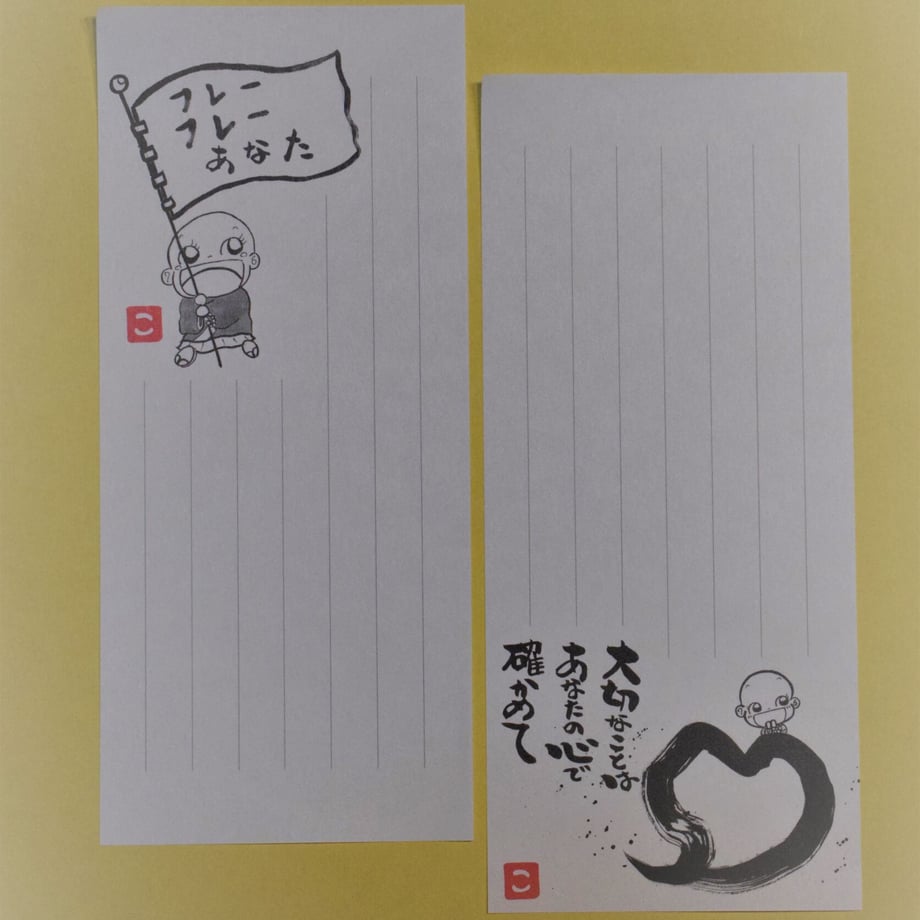 フレー
フレー
あなた
大切なことは
あなたの心で
確かめて
こ
こ